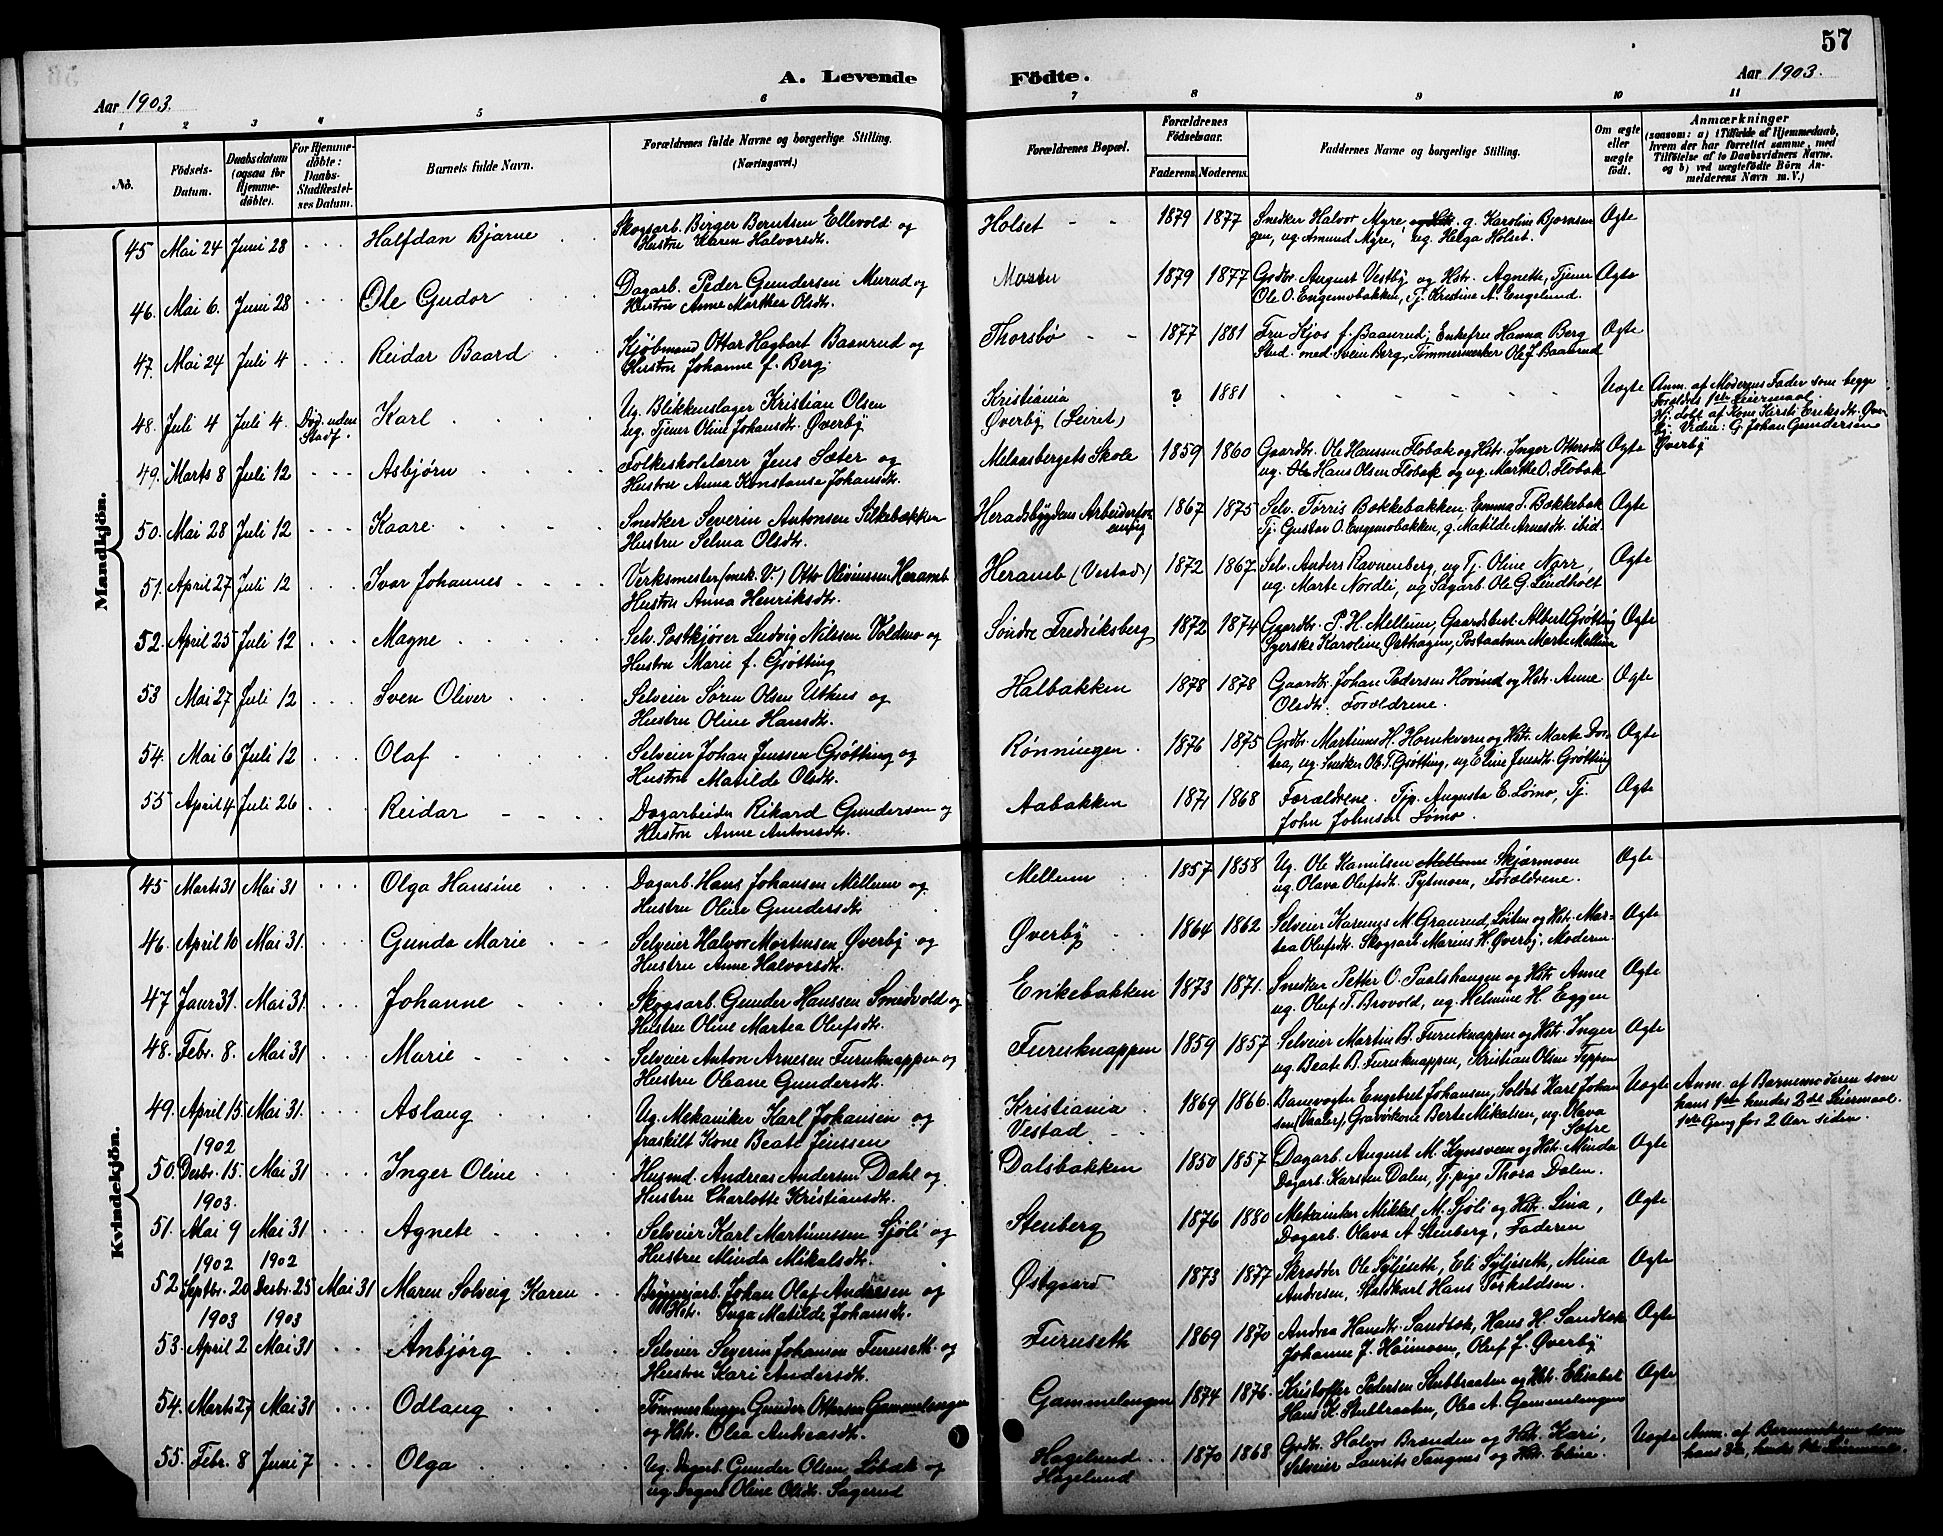 57
A. Levende Födte.
Aar 1903.
Aar 1903.
1 2 3 4 5 6 7 8 9 10 11
No.
Födsels-Datum.
Daabsdatum (ogsaa for Hjemmedöbte).
For Hjemmedöbte: Daabs-Stadfestelses Datum.
Barnets fulde Navn.
Forældrenes fulde Navne og borgerlige Stilling. (Næringsvei.)
Forældrenes Bopæl.
Forældrenes Födselsaar.
Faderens. Moderens.
Faddernes Navne og borgerlige Stilling.
Om ægte eller uægte födt.
Anmærkninger (saasom: a) i Tilfælde af Hjemmedaab, hvem der har forrettet samme, med Tilföielse af to Daabsvidners Navne. og b) ved uægtefödte Börn Anmelderens Navn m. V.)
Mandkjön.
45 Mai 24 Juni 28 Halfdan Bjarne Skogsarb. Birger Berntsen Ellevold og Holset 1879 1877 Snedker Halvor Myre, g. Karoline Bjørnsen Ægte
Hustru Karen Halvorsdt. gen, ug. Amund Myre, ug. Helga Holset.
46. Mai 6. Juni 28 Ole Gudor Dagarb. Peder Gundersen Murud og 1879 1877 Grdbr. August Vestby og Hstr. Agnette, Tjener Ægte
Hustru Anne Marthea Olsdt. Ole O. Engemobakken, Tj. Kristine A. Engelund.
47. Mai 24 Juli 4 Reidar Baard Kjøbmand Ottar Hagbart Baanrud og Thorsbø 1877 1881 Fru Kjos f. Baanrud, Enkefru Hanna Berg Ægte
Hustru Johanne f. Berg. Stud. med. Svein Berg, Tømmermerker Olaf Baanrud
48. Juli 4 Juli 4. Død uden Stadf. Karl Ug. Blikkenslager Kristian Olsen Kristiania ? 1881 Uægte Anm. af Moderens Fader som begge
ug. Tjener Oline Johansdt. Øverby Øverby (Leiret) Forældres 1ste Leiermaal.
Hj. døbt af Kone Kirsti Eriksdt. Øverby Vidne: G. Johan Gundersen
Øverby
49. Marts 8 Juli 12 Asbjørn Folkeskolelærer Jens Sæter og Melaasbergets Skole 1859 1860 Gaardbr. Ole Hansen Flobak og Hstr. Inger Ottersdt. Ægte
Hustru Anna Konstanse Johansdt. ug. Hans Olsen Flobak og ug. Marthe O. Flobak
50. Mai 28 Juli 12 Kaare Snedker Severin Antonsen Silkebækken Heradsbygdens Arbeiderforening 1867 1875 Selv. Torris Bækkebakken Emma T. Bækkebak Ægte
Hustru Selma Olsdt. Tj. Gustav O. Engemobakken, g. Matilde Arnesdt. ibid.
51. April 27 Juli 12 Ivar Johannes Verksmester (mek. V.) Otto Oliviussen Heramb Heramb (Vestad) 1872 1867 Selv. Anders Ravneberg, ug Tj. Oline Nørr, Ægte
Hustru Anna Henriksdt. ug. Marte Nordli, ug Sagarb. Ole G. Lindholt
52. April 25 Juli 12 Magne Selv. Postkjører Ludvig Nilssen Voldmo og Søndre Fredriksberg 1872 1874 Gaardbr. P. H. Mellum, Gaardsbest. Albert Grøtting Ægte
Hustru Marie f. Grøtting Syerske Karoline Østhagen, Postaabner Marte Mellum
53 Mai 27 Juli 12 Sven Oliver Selveier Søren Olsen Uthus og Halbakken 1878 1878 Gaardbr. Johan Pedersen Hovind og Hstr. Anne Ægte
Hustru Oline Hansdt. Olsdt. Forældrene.
54. Mai 6 Juli 12 Olaf Selveier Johan Jenssen Grøtting og Rønningen 1876 1875 Grdbr. Martinus H. Hornkvern og Hstr. Marte Dor- Ægte
Hustru Matilde Olsdt. tea, ug. Snedker Ole T. Grøtting, ug Eline Jensdt. Grøtting
55 April 4 Juli 26 Reidar Dagarbeider Rikard Gundersen og Aabakken 1871 1868 Forældrene. Tjp. Augusta E. Lømo, Tj. Ægte
Hustru Anne Antonsdt. John Johnsen Lømo.
Kvindekjön.
45 Marts 31 Mai 31 Olga Hansine Dagarb. Hans Johansen Mellum og Mellum 1857 1858 Ug. Ole Kamilsen Mellum Skjærmoen Ægte
Hustru Oline Gundersdt. ug. Olava Olufsdt. Pytmoen, Forældrene.
46. April 10 Mai 31. Gunda Marie Selveier Halvor Mortensen Øverby og Øverby 1864 1862 Selveier Karenus M. Granrud, Løiten og Hstr. Mar- Ægte
Hustru Anne Halvorsdt. tea Olufsdt. Skogsarb Marius H. Øverby, Moderen
47 Janr 31. Mai 31. Johanne Skogsarb. Gunder Hanssen Smedvold og Enkebakken 1873 1871. Snedker Petter O. Paalshaugen og Hstr. Anne Ægte
Hustru Oline Martea Olufsdt. ug. Oluf T. Brovold, ug. Helmine H. Eggen
48. Febr. 8. Mai 31 Marie Selveier Anton Arnesen Furuknappen og Furuknappen 1859 1857 Selveier Martin B. Furuknappen og Hstr. Inger Ægte
Hustru Oleane Gundersdt. ug. Beate B. Furuknappen, Kristian Olsen Teppen
49. April 15 Mai 31. Aslaug Ug. Mekaniker Karl Johansen og Kristiania 1869 1866. Banevogter Engebret Johansen, Soldat Karl Johan Uægte Anm. af Barnemoderen som
fraskilt Kone Beate Jenssen Vestad sen (Vaaler), Gravvikone Berte Mikalsen, ug. Olava hans 1ste hendes 3die Leiermaal.
Sætre 1ste Gang for 2 Aar siden.
1902
50. Decbr. 15. Mai 31 Inger Oline Husmd. Andreas Andersen Dahl og Dalsbakken 1850 1857 Dagarb. August M. Kynsveen og Hstr. Minda Ægte
Hustru Charlotte Kristiansdt. Dagarb. Karsten Dalen, Tj.pige Thora Dalen.
1903.
51. Mai 9 Mai 31 Agnete Selveier Karl Martinussen Sjøli og Stenberg 1876 1880 Mekaniker Mikkel M. Sjøli og Hstr. Lina, Ægte
Hustru Minda Mikalsdt. Dagarb. Olava A Stenberg, Faderen
1902 1902
52 Septbr. 20 Decbr. 25 Mai 31 Maren Solveig Karen Johan Olaf Andresen og Østgaard 1873 1877 Skrædder Ole Syljeseth, Eli Syljeseth, Mina Ægte
Hstr. Inga Matilde Johansdt. Andresen, Staldkarl Hans Torkildsen.
1903 1903
53. April 2 Mai 31 Anbjørg Selveier Severin Johansen Furuseth og Furuseth 1869 1870 Andrea Hansdt. Sandbæk, Hans H. Sandbæk Ægte
Hustru Kari Andersdt. Johanne J. Høimoen, Oluf J. Øverby
54. Marts 27 Mai 31 Odlaug Tømmerhugger Gunder Ottersen Gammelengen Gammelengen 1874 1876. Kristoffer Pedersen Stubbraaten og Hstr. Elisabet Ægte
og Hstr. Olea Andreasdt. Hans K. Stubbraaten, Olea A. Gammelengen
55. Febr. 8 Juni 7 Olga Ug. Dagarb. Gunder Olsen Løbæk og Hagelund 1870 1868 Grdbr. Halvor Brænden og Hstr. Kari, Uægte Anm. af Barnemoderen som
ug. Dagarb Oline Olsdt. Sagerud Hagelund Selveier Laurits Tangnes og Hstr. Eline. hans 3die, hendes 1ste Leiermaal.